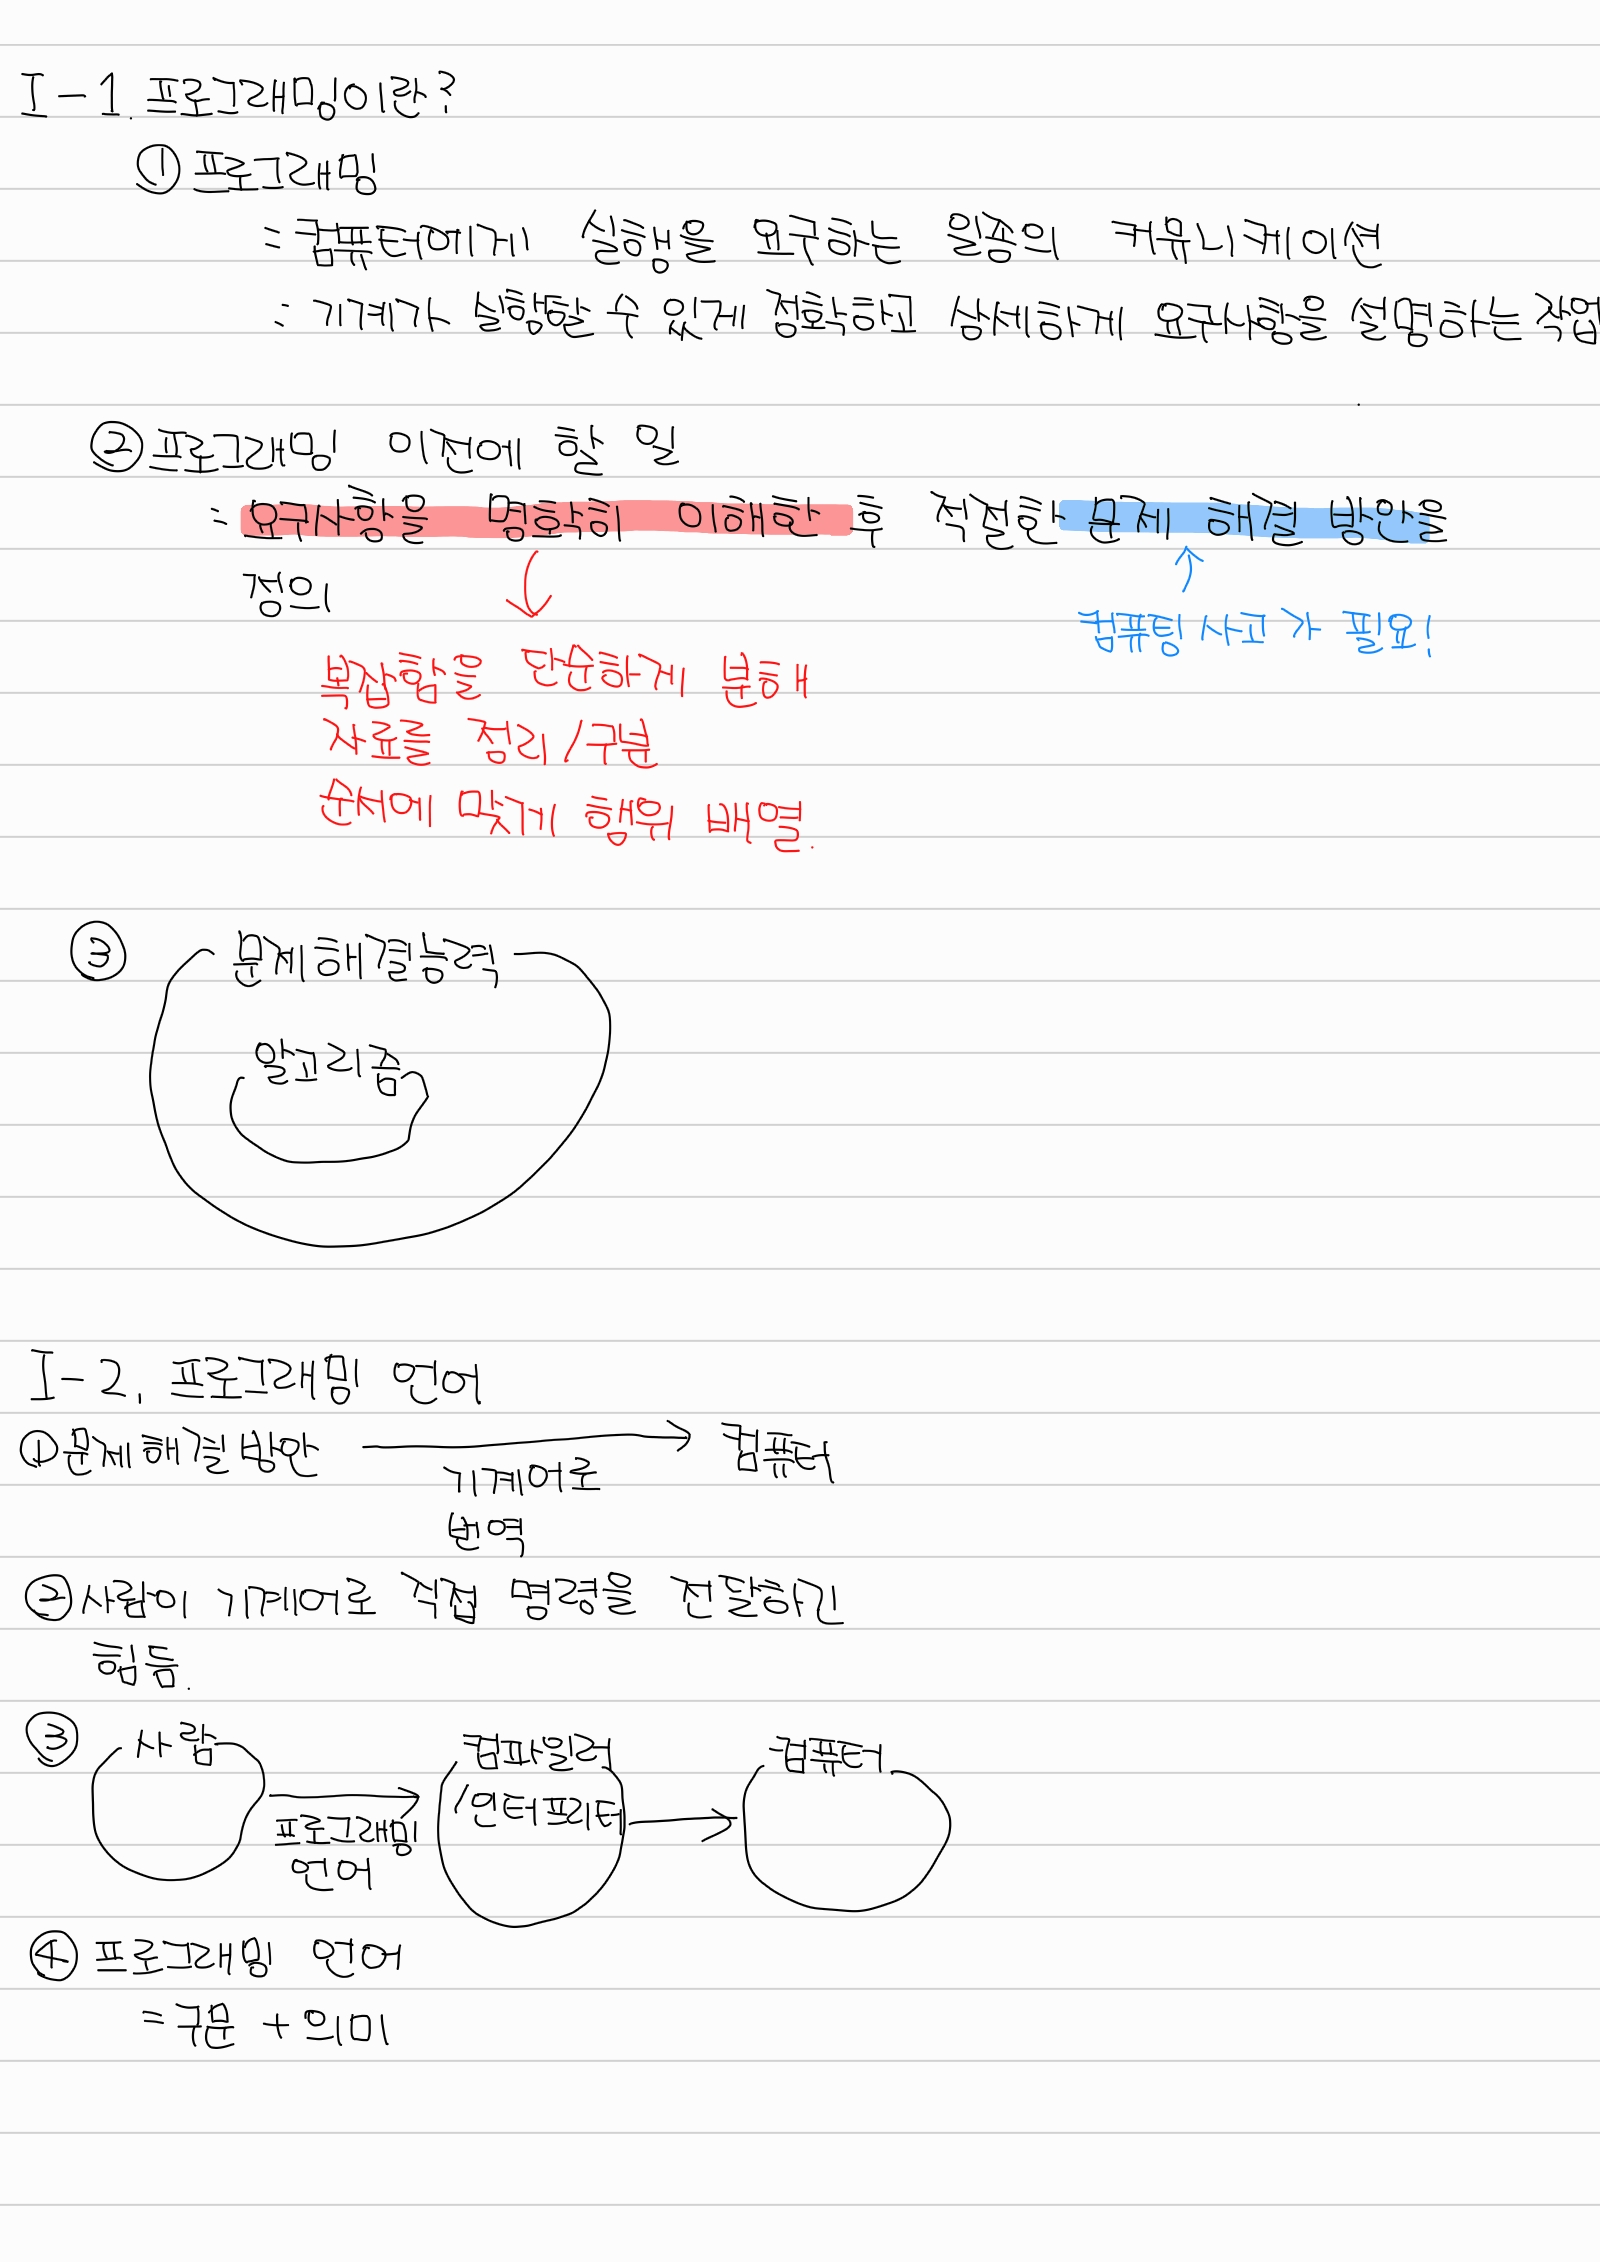 I-1. 프로그래밍이란?
① 프로그래밍
= 컴퓨터에게 실행을 요구하는 일종의 커뮤니케이션
= 기계가 실행할 수 있게 정확하고 상세하게 요구사항을 설명하는 작업
② 프로그래밍 이전에 할 일
= 요구사항을 명확히 이해한 후 적절한 문제 해결 방안을
정의
컴퓨팅 사고가 필요!
복잡함을 단순하게 분해
자료를 정리/구분
순서에 맞게 행위 배열.
③ 문제해결능력
알고리즘
I-2. 프로그래밍 언어
① 문제해결방안 → 컴퓨터
기계어로
번역
② 사람이 기계어로 직접 명령을 전달하긴
힘듬.
③ 사람 컴파일러 컴퓨터
/인터프리터
프로그래밍
언어
④ 프로그래밍 언어
= 구문 + 의미